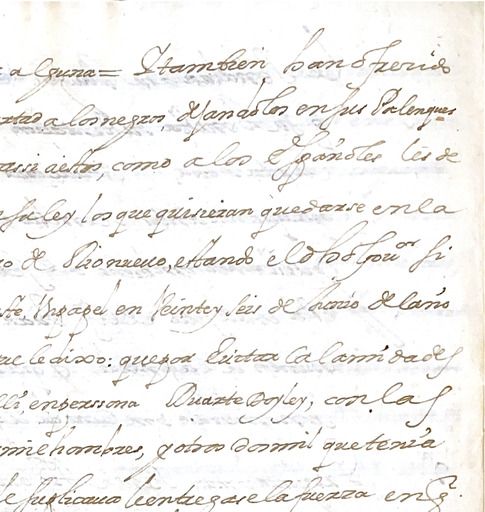 alguna = Y tambien, han ofrecido
a los negros, dejandolos en sus Palenques
assi a estos, como a los Españoles les de
su ley los que quisieran quedarse en la
de Rionuevo, estando el dho Gou.or Si
en Veinte y seis de Junio del año
le dixo: que por Evitar Calamidades
en perssona Duarte Doyley, con las
mil hombres, y otros dos mil que tenia
le suplicaua le entregase la fuerza en q.